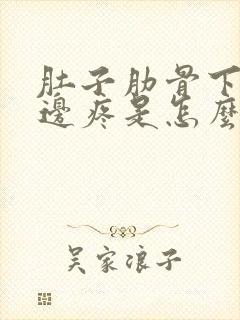 肚子肋骨下
邊疼是怎麼
吴家浪子